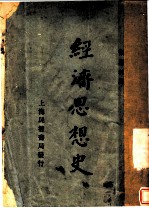 經濟思想史
上海民智書局發行